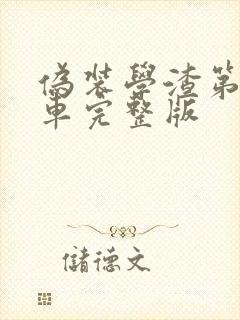 偽裝學渣第
車完整版
儲德文